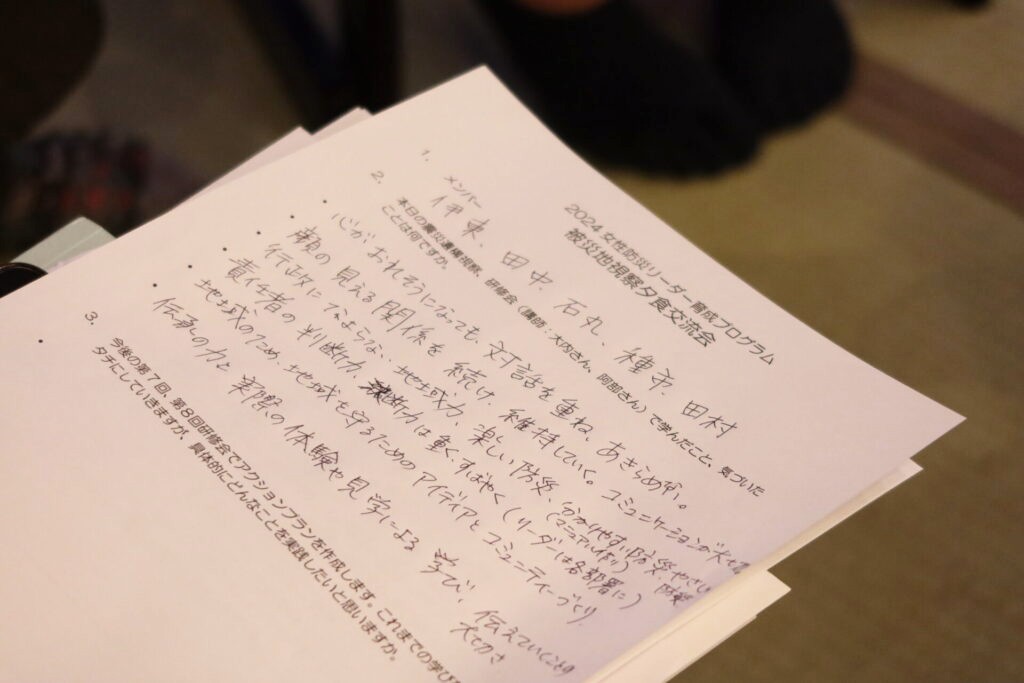 2024 女性防災リーダー育成プログラム
被災地視察夕食交流会
1. メンバー
伊東、田中 石丸、種市、田村
2. 本日の震災遺構視察、研修会（講師：大内さん、阿部さん）で学んだこと、気づいた
ことは何ですか。
・心がおれそうになっても、対話を重ね、あきらめず。
・顔の見える関係を続け、維持していく。コミュニケーションが大切
・行政にたよらない、地域力、楽しい防災、分かりやすい防災、やさしい防災
(マニュアル作り)
責任者の判断力、決断力は重く、すばやく(リーダーは各部署に)
・地域のため、地域を守るためのアイディアとコミュニティーづくり
・伝承の力と実際の体験や見学による学び、伝えていくことの
大切さ
3. 今後の第7回、第8回研修会でアクションプランを作成します。これまでの学び
タチにしていきますが、具体的にどんなことを実践したいと思いますか。
・